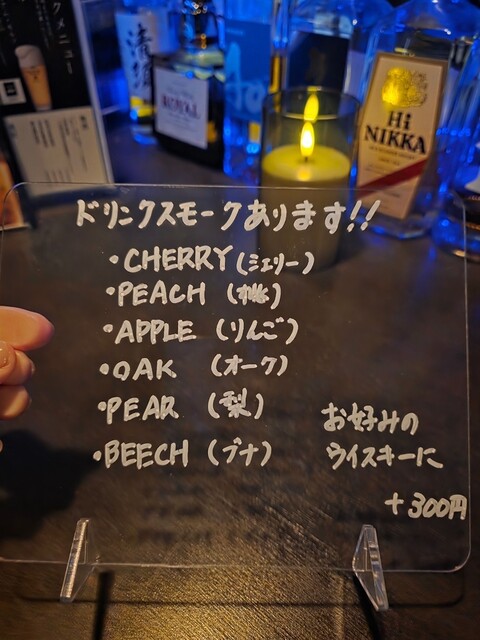 清須
ROYAL
Ao
Hi
NIKKA
ドリンクスモークあります!!
・CHERRY (ミェリー)
・PEACH (桃)
・APPLE (りんご)
・OAK (オーク)
・PEAR (梨)
・BEECH (ブナ)
お好みの
ウイスキーに
+300円